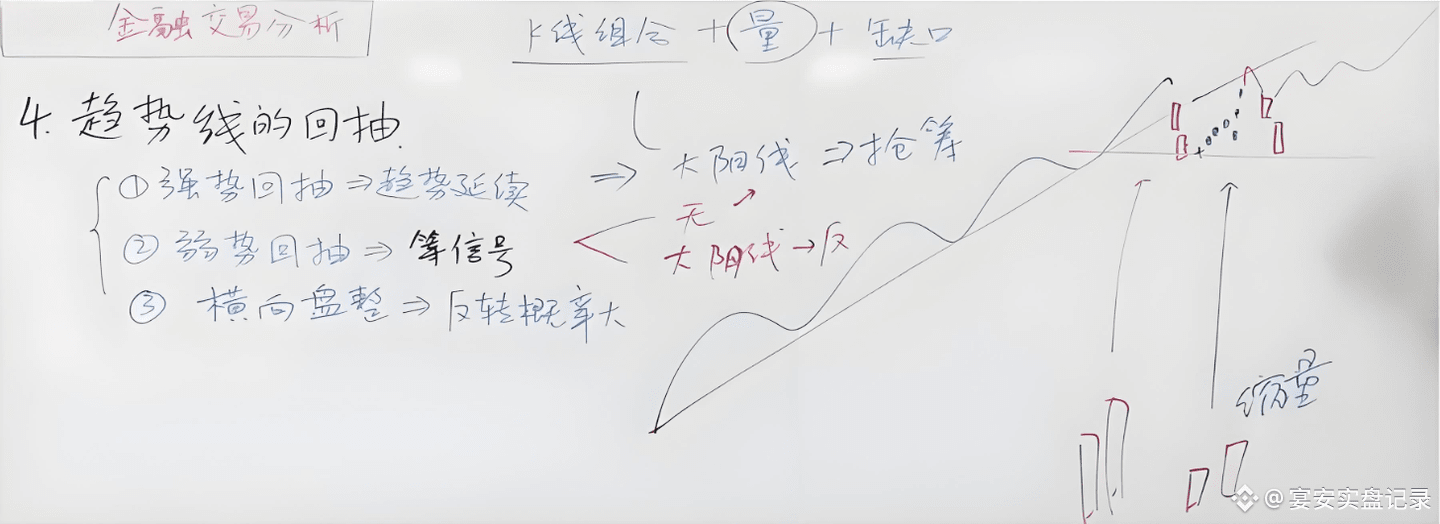 金融交易分析
K线组合+量+缺口
4.趋势线的回抽.
①强势回抽⇒趋势延续
⇒大阳线⇒抢筹
②弱势回抽⇒等信号
无
大阳线→反
③横向盘整⇒反转概率大
缩量
@宴安实盘记录